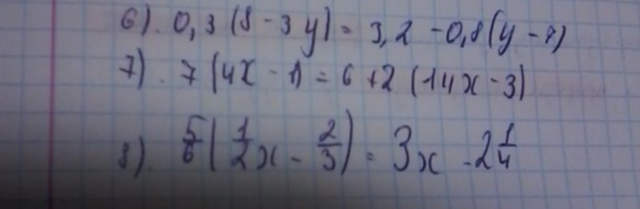 6). 0,3(8-3y)=3,2-0,8(y-7)
7). 7(4x-1)=6+2(14x-3)
8). 5/6(1/2x-2/3)=3x-2 1/4